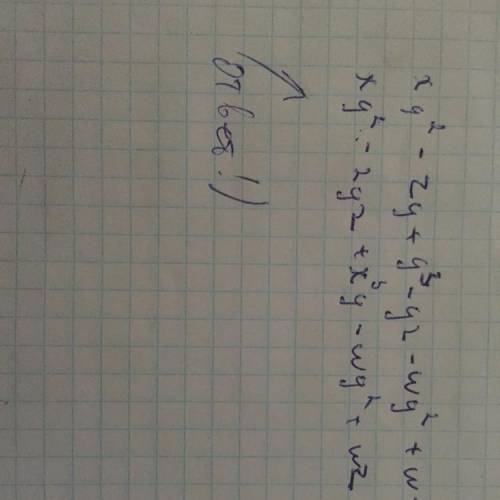 xy² - zy + y³ - yz - wy² + w
xy² - 2yz + x³y - wy² + wz
Ответ!)